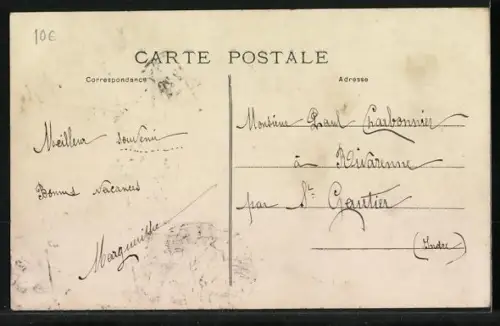 10€
CARTE POSTALE
Correspondance
Adresse
Meilleur souvenir
Bonnes vacances
Marguerite
Monsieur Paul Charbonnier
à Rivarenne
par St. Gautier
(Indre)